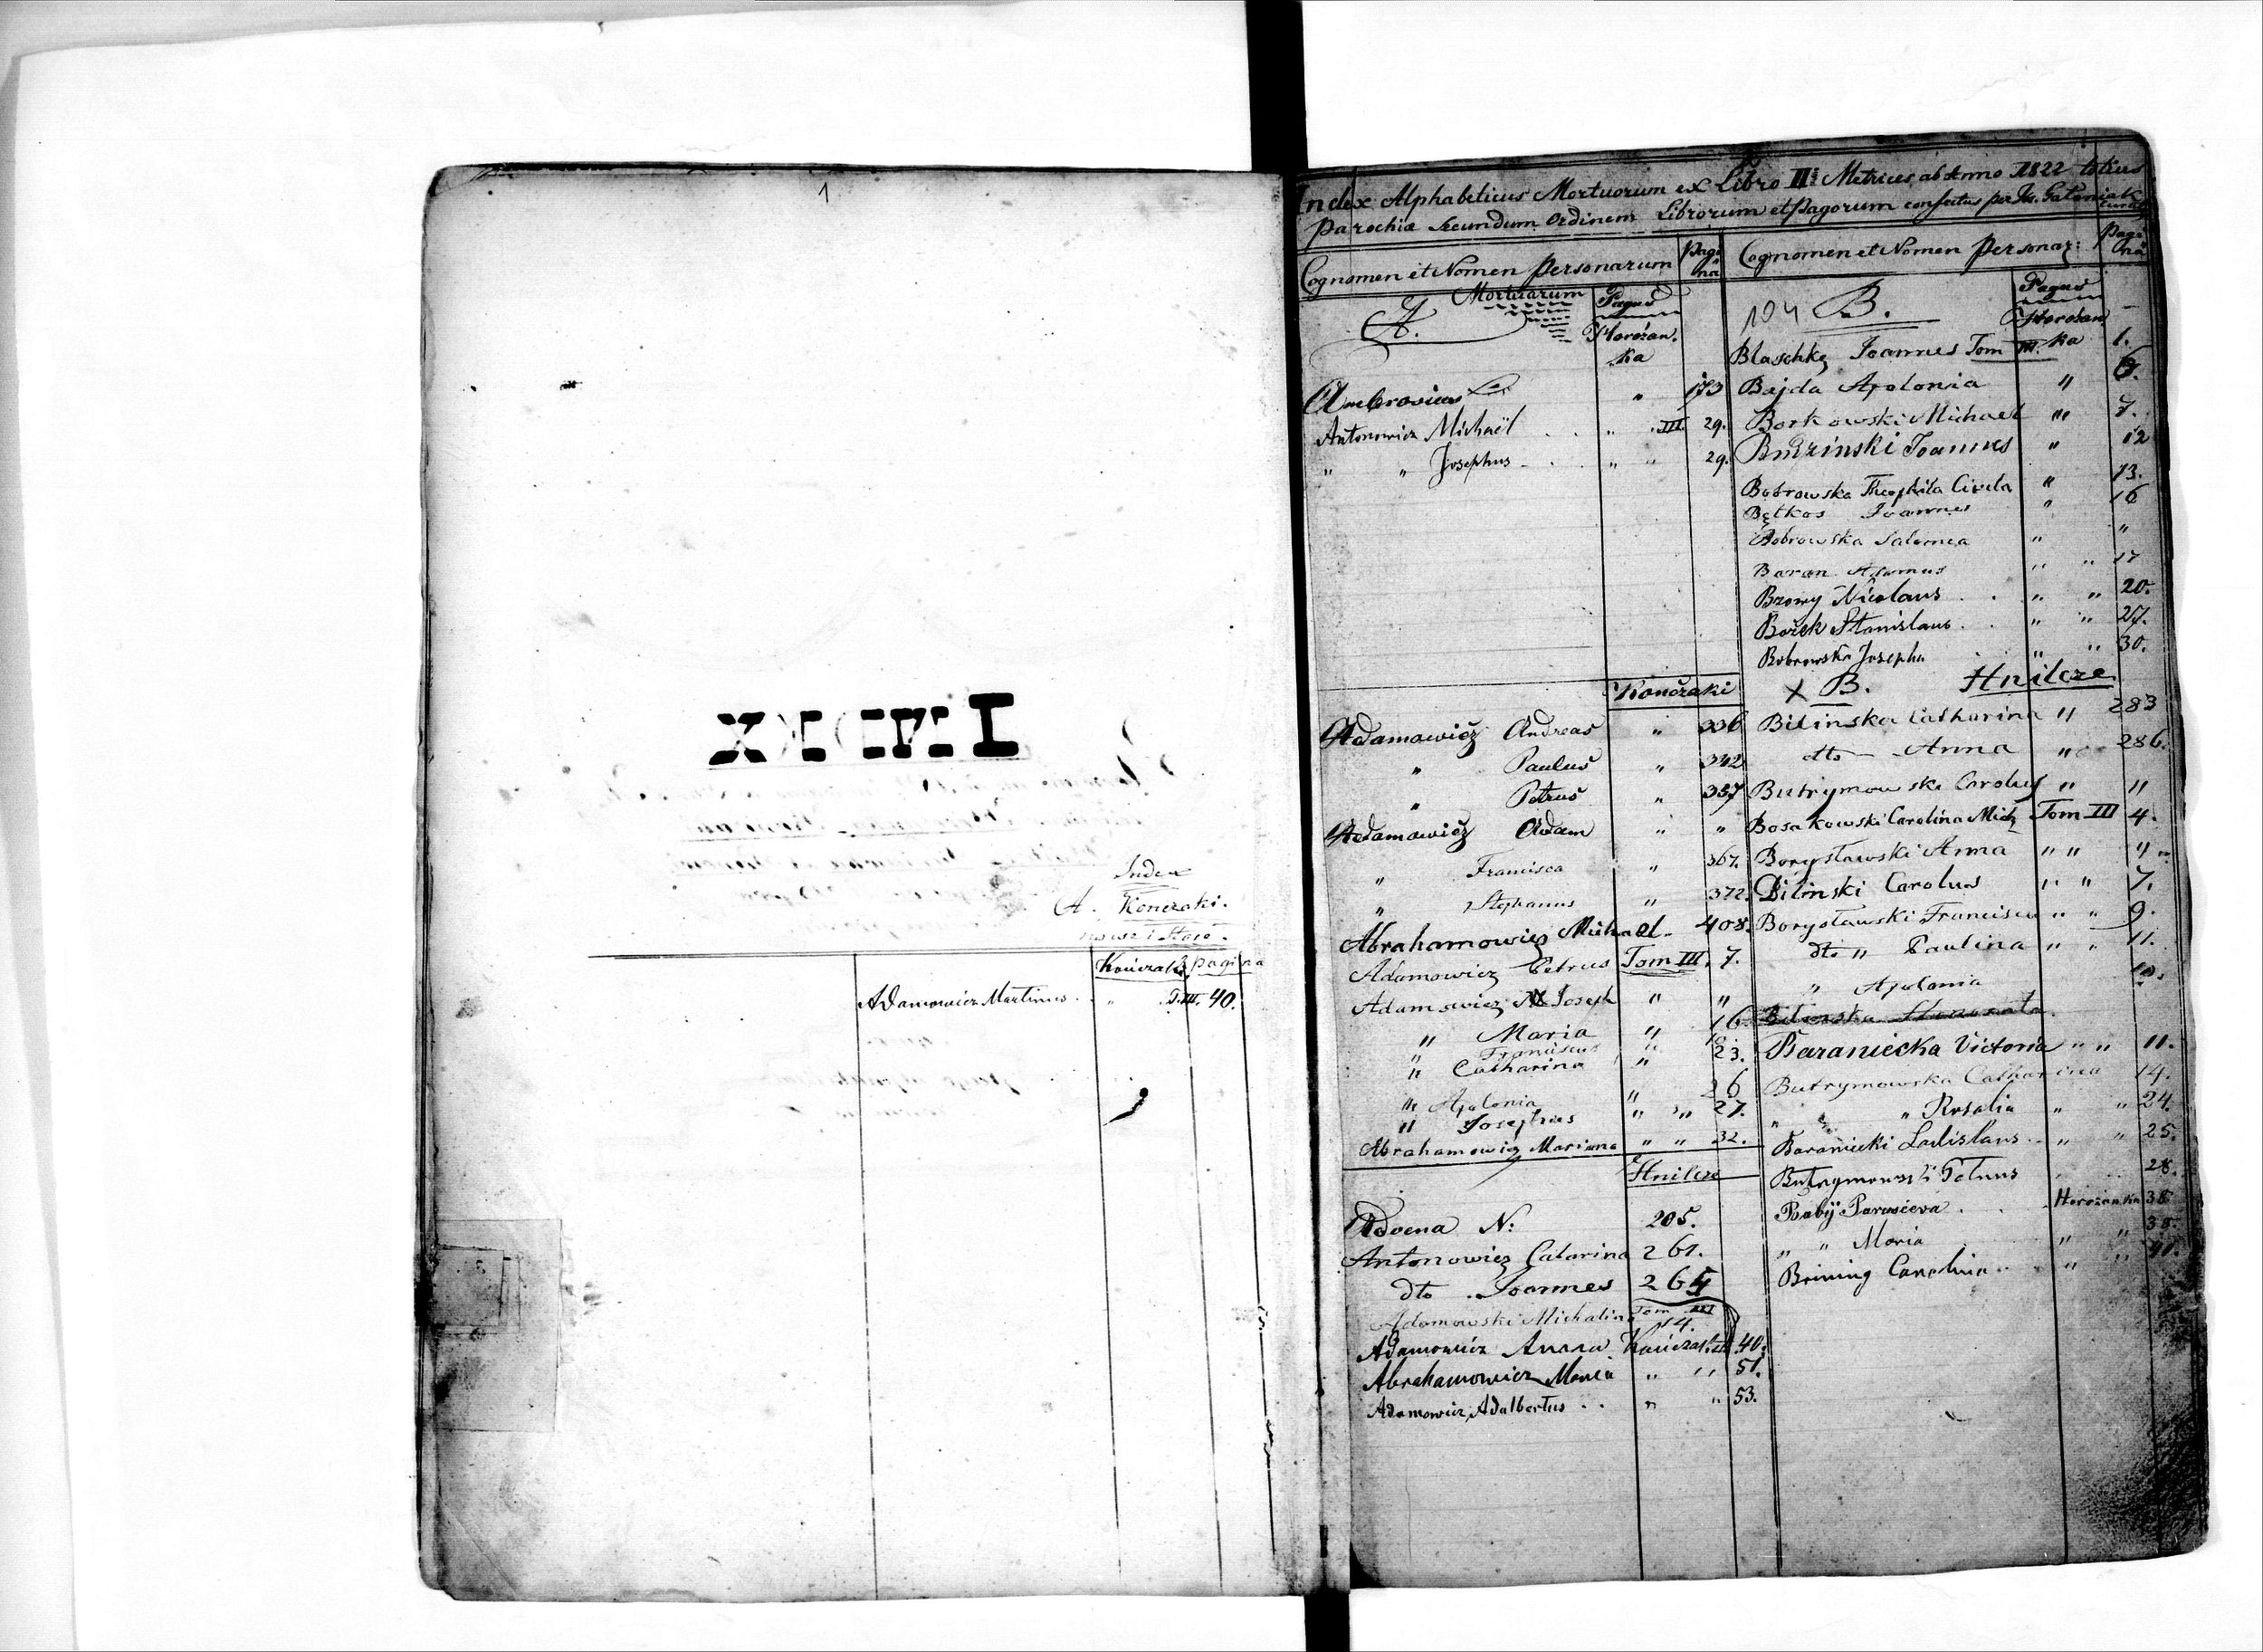 1
Index
A. Kończaki.
nowe i Stare.
Kończaki pagina
Adamowicz Martinus . " T. III. 40.
Index Alphabeticus Mortuorum ex Libro II Metrices ab Anno 1822 totius
Parochiæ Secundum Ordinem Librorum et Pagorum confectus per
Cognomen et Nomen Personarum Pagina
Mortuarum Pagus
A. Horożanka
Ambrosius " 173
Antonowicz Michaël . . " III. 29.
" " Josephus . . " " 29.
Kończaki
Adamowicz Andreas " 336
" Paulus " 342
" Petrus " 357
Adamowicz Adam " "
" Francisca " 367.
" Stephanus " 372.
Abrahamowicz Michael 408.
Adamowicz Petrus Tom III. 7.
Adamowicz Joseph " "
" Maria " 16
" Franciscus "
" Catharina " 23.
" Apolonia " 26
" Josephus " " 27.
Abrahamowicz Marianna " " 32.
Hnilcze
Advena N: 205.
Antonowicz Catarina 261.
dto Joannes 265
Adamowski Michalina Tom III 14.
Adamowicz Anna Kończaki III 40.
Abrahamowicz Maria " " 51.
Adamowicz Adalbertus . . " " 53.
Cognomen et Nomen Personar: Pagina
104 B. Pagus
Horożanka
Blaschke Joannes Tom III. 1.
Bejda Apolonia " 6.
Borkowski Michael " 7.
Joannes " 12
Bobrowska Theophila " 13.
Bętkos Joannes " 16
Bobrowska Salomea " "
Baran Adamus " " 17
Brzowy Nicolaus . . " " 20.
Bożek Stanislaus . . " " 27.
Bobrowska Josepha . " " 30.
X B. Hnilcze
Bilinska Catharina " 283
dto Anna " 286.
Butrymowski Carolus " "
Bosakowski Carolina Tom III 4.
Borysławski Anna " " "
Bilinski Carolus " " 7.
Borysławski Francisca " " 9.
dto " Paulina " " 11.
" Apolonia 10.
Baraniecka Victoria " " 11.
Butrymowska Catharina 14.
" " Rosalia " " 24.
Baraniecki Ladislaus . . " " 25.
Butrymowski 28.
Babÿ Parasceva . . Horożanka 38
" " Maria " " 38.
Brining Carolina . . " " 41.